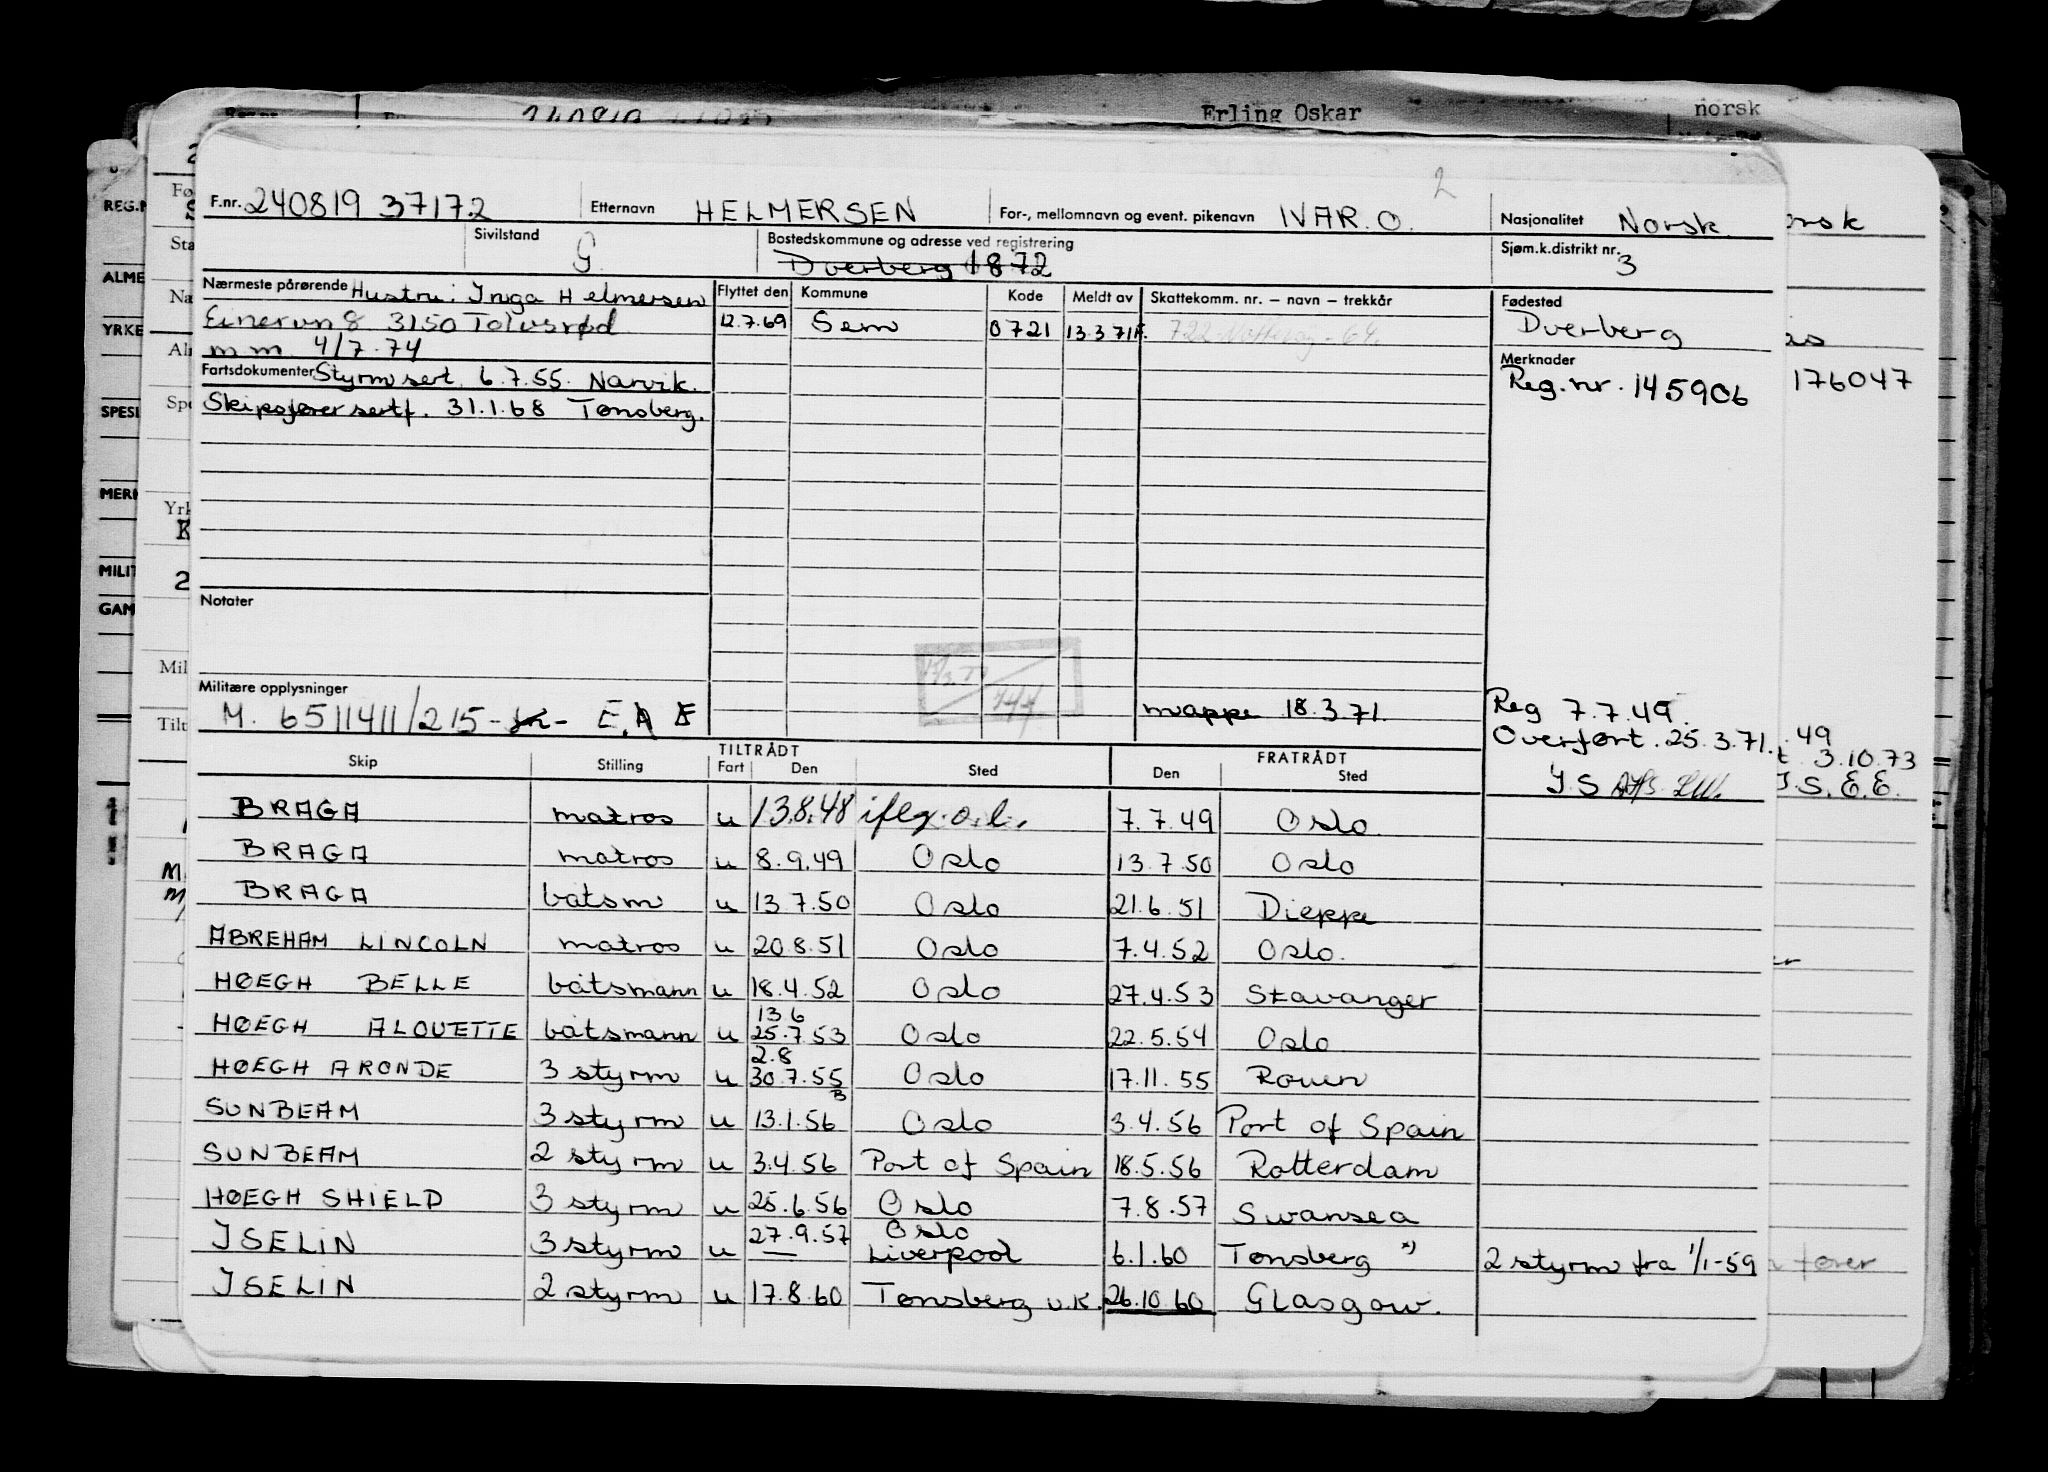 Erling Oskar norsk
2
F.nr. 240819 37172 Etternavn HELMERSEN For-, mellomnavn og event. pikenavn IVAR. O. Nasjonalitet Norsk
Sivilstand G Bostedskommune og adresse ved registrering Dverberg 1872 Sjøm.k.distrikt nr. 3
Nærmeste pårørende Hustru: Inga Helmersen Flyttet den Kommune Kode Meldt av Skattekomm. nr. – navn – trekkår Fødested
Einervn 8 3150 Tolvsrød 12.7.69 Sem 0721 13.3.71 Dverberg
m m 4/7.74 Merknader
Fartsdokumenter Styrm sert. 6.7.55. Narvik. Reg. nr. 145906 176047
Skipsfører sertf. 31.1.68 Tønsberg.
Notater
Militære opplysninger
M. 6511411/215- mappe 18.3.71. Reg 7.7.49.
Overført. 25.3.71. 49
3.10.73
J.S. J.S. E.E.
TILTRÅDT FRATRÅDT
Skip Stilling Fart Den Sted Den Sted
BRAGA matros u 13.8.48 7.7.49 Oslo
BRAGA matros u 8.9.49 Oslo 13.7.50 Oslo
BRAGA båtsm u 13.7.50 Oslo 21.6.51 Dieppe
ABREHAM LINCOLN matros u 20.8.51 Oslo 7.4.52 Oslo.
HØEGH BELLE båtsmann u 18.4.52 Oslo 27.4.53 Stavanger
13.6
HØEGH ALOUETTE båtsmann u 25.7.53 Oslo 22.5.54 Oslo
2.8
HØEGH ARONDE 3 styrm u 30.7.55 Oslo 17.11.55 Rouen
SUNBEAM 3 styrm u 13.1.56 Oslo 3.4.56 Port of Spain
SUNBEAM 2 styrm u 3.4.56 Port of Spain 18.5.56 Rotterdam
HØEGH SHIELD 3 styrm u 25.6.56 Oslo 7.8.57 Swansea
27.9.57 Oslo
ISELIN 3 styrm u — Liverpool 6.1.60 Tønsberg *) 2 styrm fra 1/1-59
ISELIN 2 styrm u 17.8.60 Tønsberg v.k. 26.10.60 Glasgow.